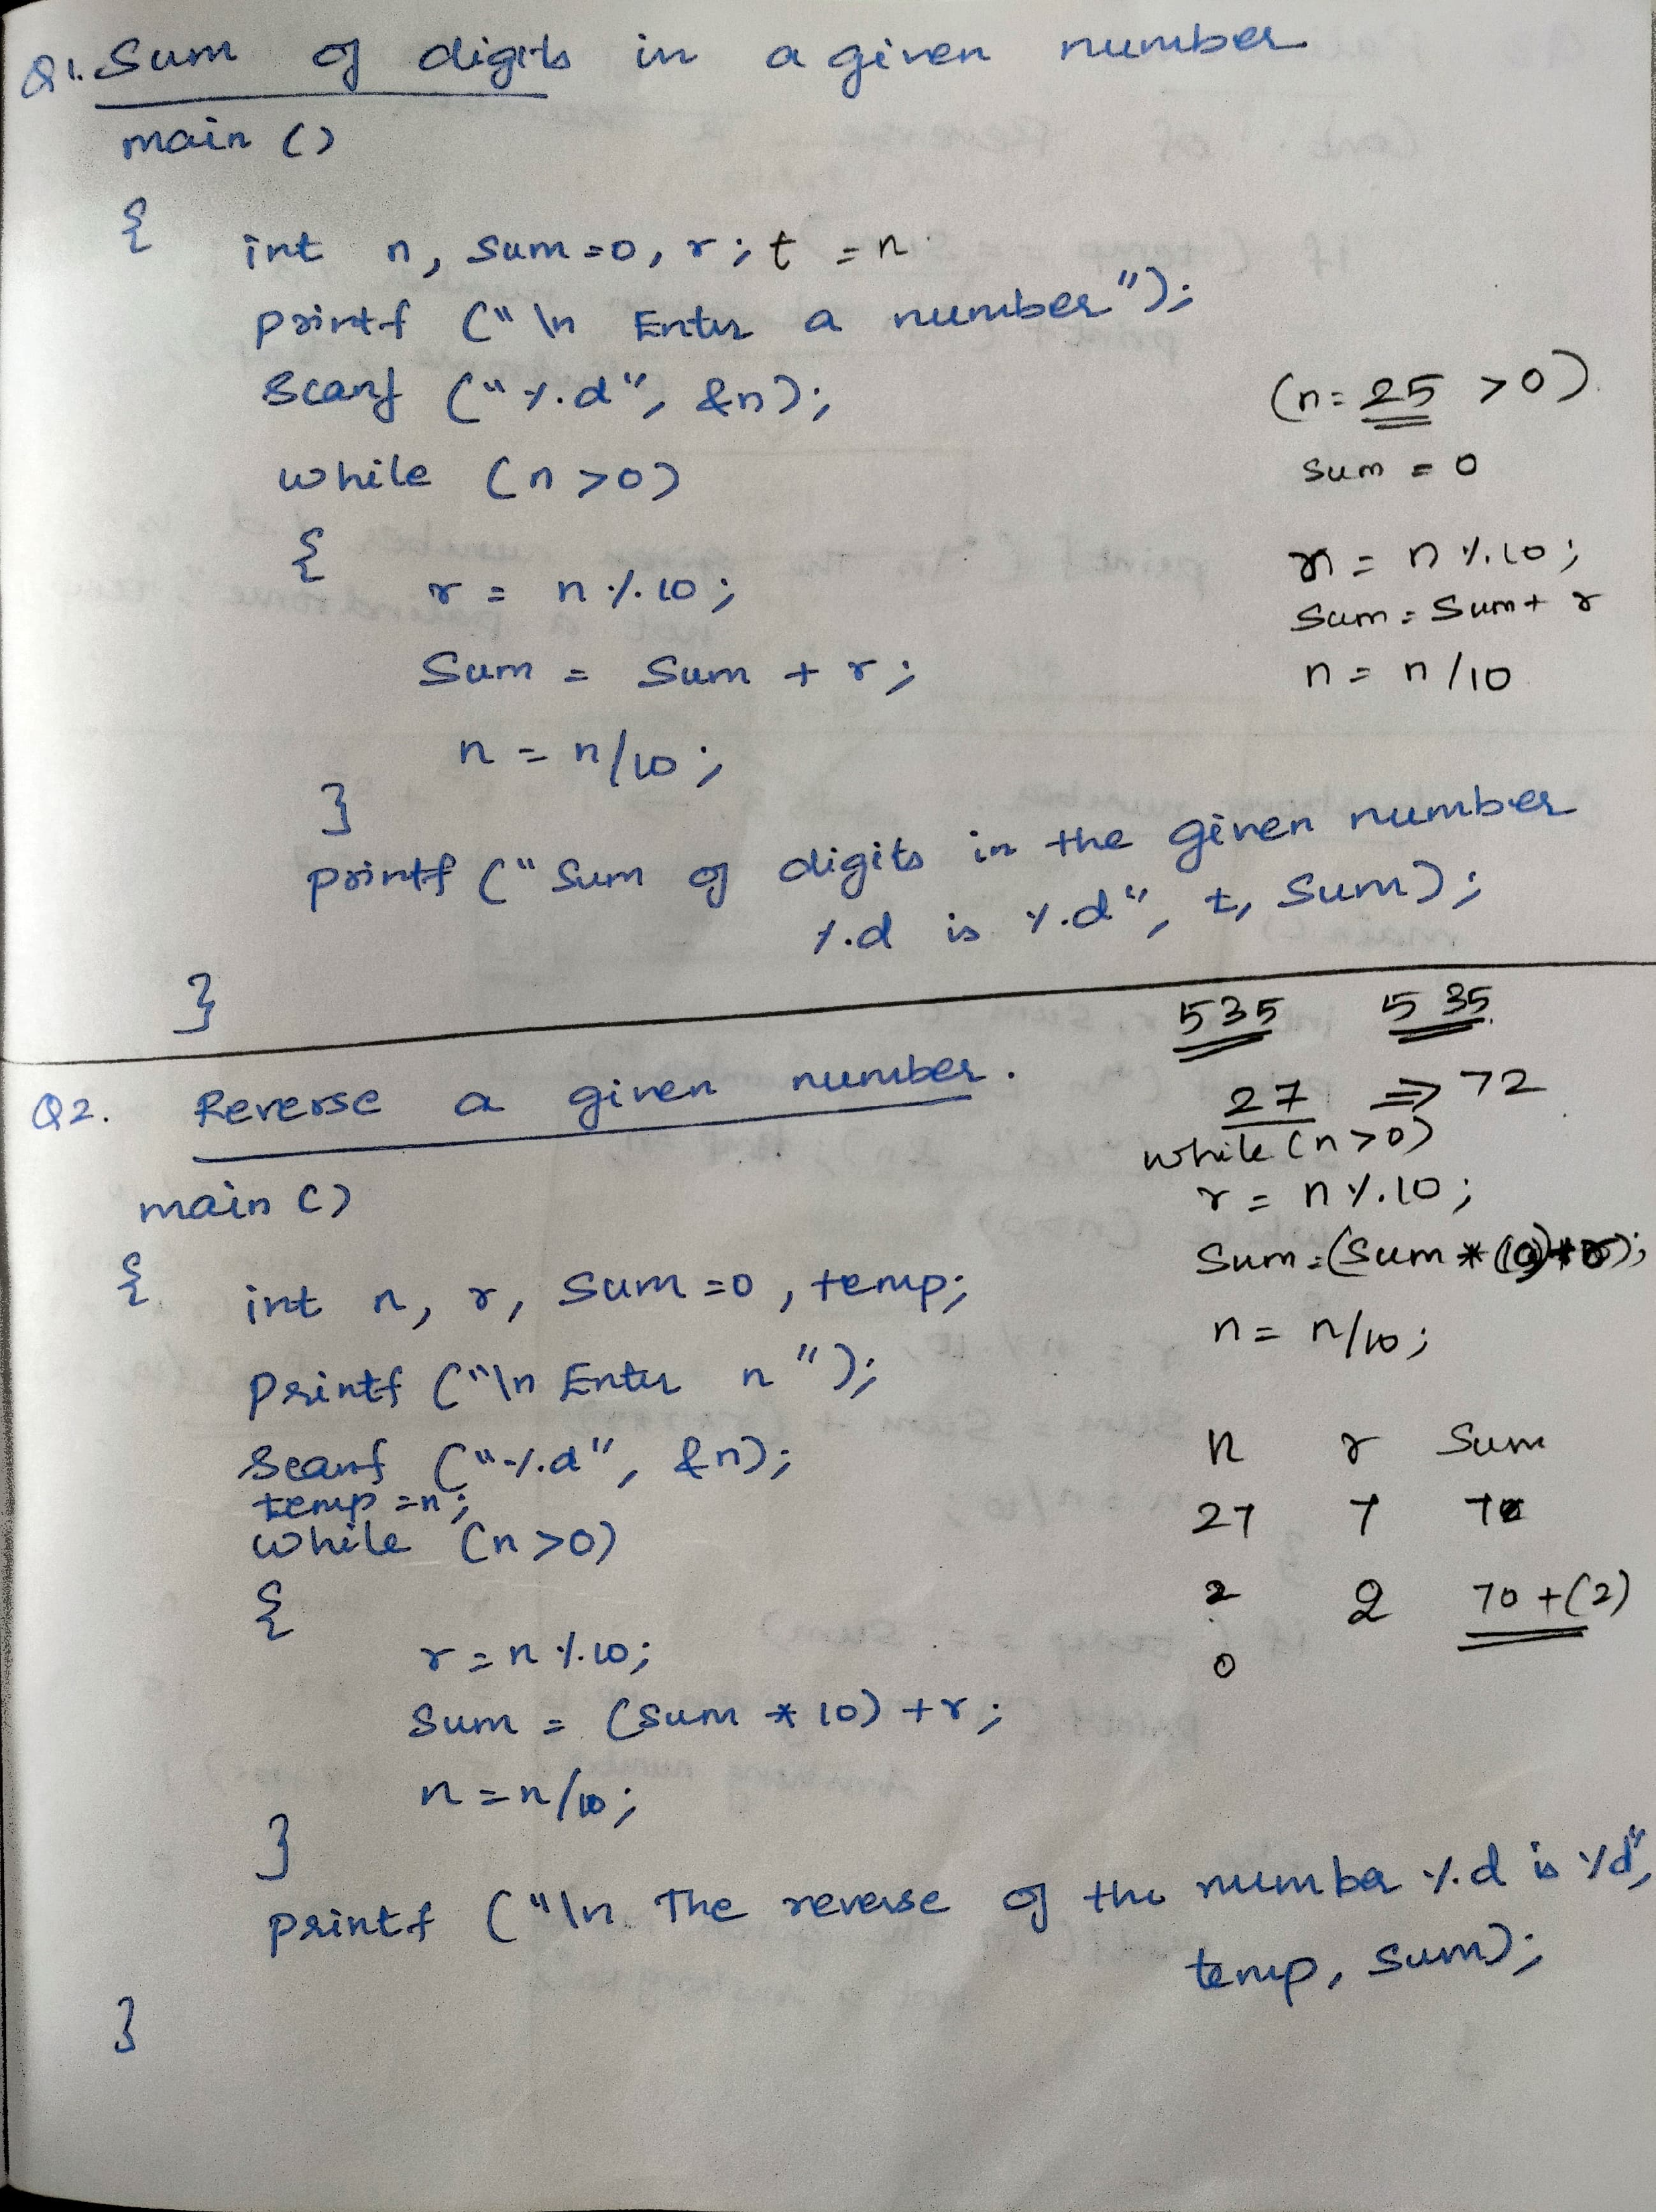 Q1. Sum of digits in a given number
main ()
{
int n, sum=0, r; t = n
printf ("\n Enter a number");
Scanf ("%d", &n);
while (n>0)
{
r = n%10;
Sum = Sum + r;
n = n/10;
}
printf ("Sum of digits in the given number
%d is %d", t, Sum);
}
(n=25 >0)
sum = 0
r = n%10;
Sum = Sum + r
n = n/10
535 535
27 => 72
while (n>0)
r = n%10;
Sum=(Sum * 10)+r);
n = n/10;
n r Sum
27 7 70
2 2 70+(2)
0
Q2. Reverse a given number.
main ()
{
int n, r, Sum=0, temp;
printf ("\n Enter n");
Scanf ("%d", &n);
temp=n;
while (n>0)
{
r=n%10;
Sum = (Sum * 10) +r;
n=n/10;
}
printf ("\n The reverse of the number %d is %d",
temp, Sum);
}